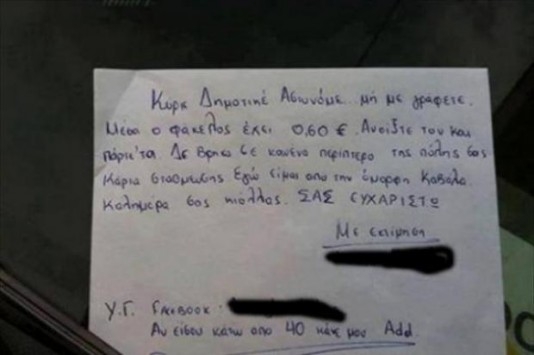 Κύριε Δημοτικέ Αστυνόμε... μή με γράφετε.
Μέσα ο φάκελος έχει 0,60 €. Ανοίξτε τον και
πάρτε'τα. Δε βρήκα σε κανένα περίπτερο της πόλης σας
κάρτα στάθμευσης Εγώ είμαι από την όμορφη Καβάλα.
Καλημέρα σας κιόλλας. ΣΑΣ ΕΥΧΑΡΙΣΤΩ
Με εκτίμηση
Υ.Γ. Facebook:
Αν είσαι κάτω από 40 κάνε μου Add.